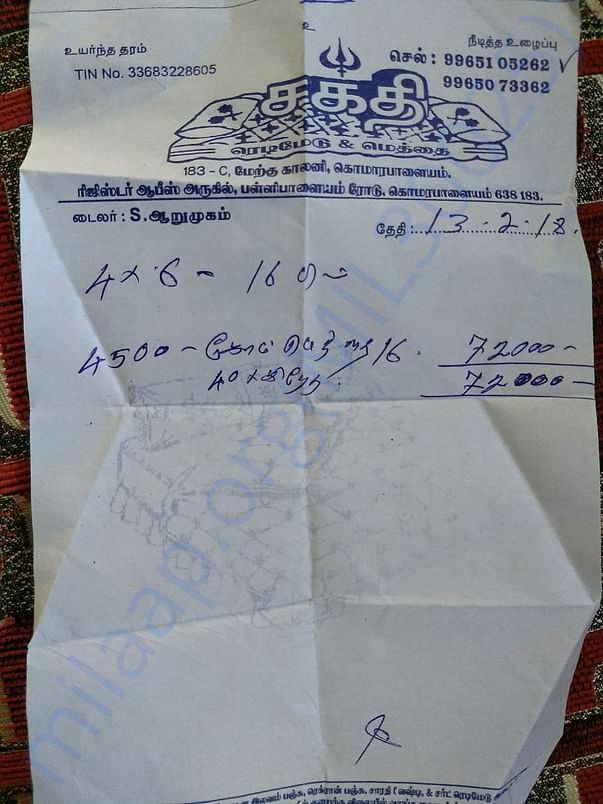 உ
உயர்ந்த தரம்
நீடித்த உழைப்பு
TIN No. 33683228605
செல் : 99651 05262
99650 73362
சக்தி
ரெடிமேடு & மெத்தை
183 - C, மேற்கு காலனி, கொமாரபாளையம்.
ரிஜிஸ்டர் ஆபீஸ் அருகில், பள்ளிபாளையம் ரோடு, கொமரபாளையம் 638 183.
டைலர் : S.ஆறுமுகம்
தேதி : 13.2.18.
4 x 6 - 16
4500 - 16. 72000 -
40 x 72000 -
இலவம் பஞ்சு, ரெக்ரான் பஞ்சு, சாரதி வேஷ்டி, & சர்ட் ரெடிமேடு
milaap.org